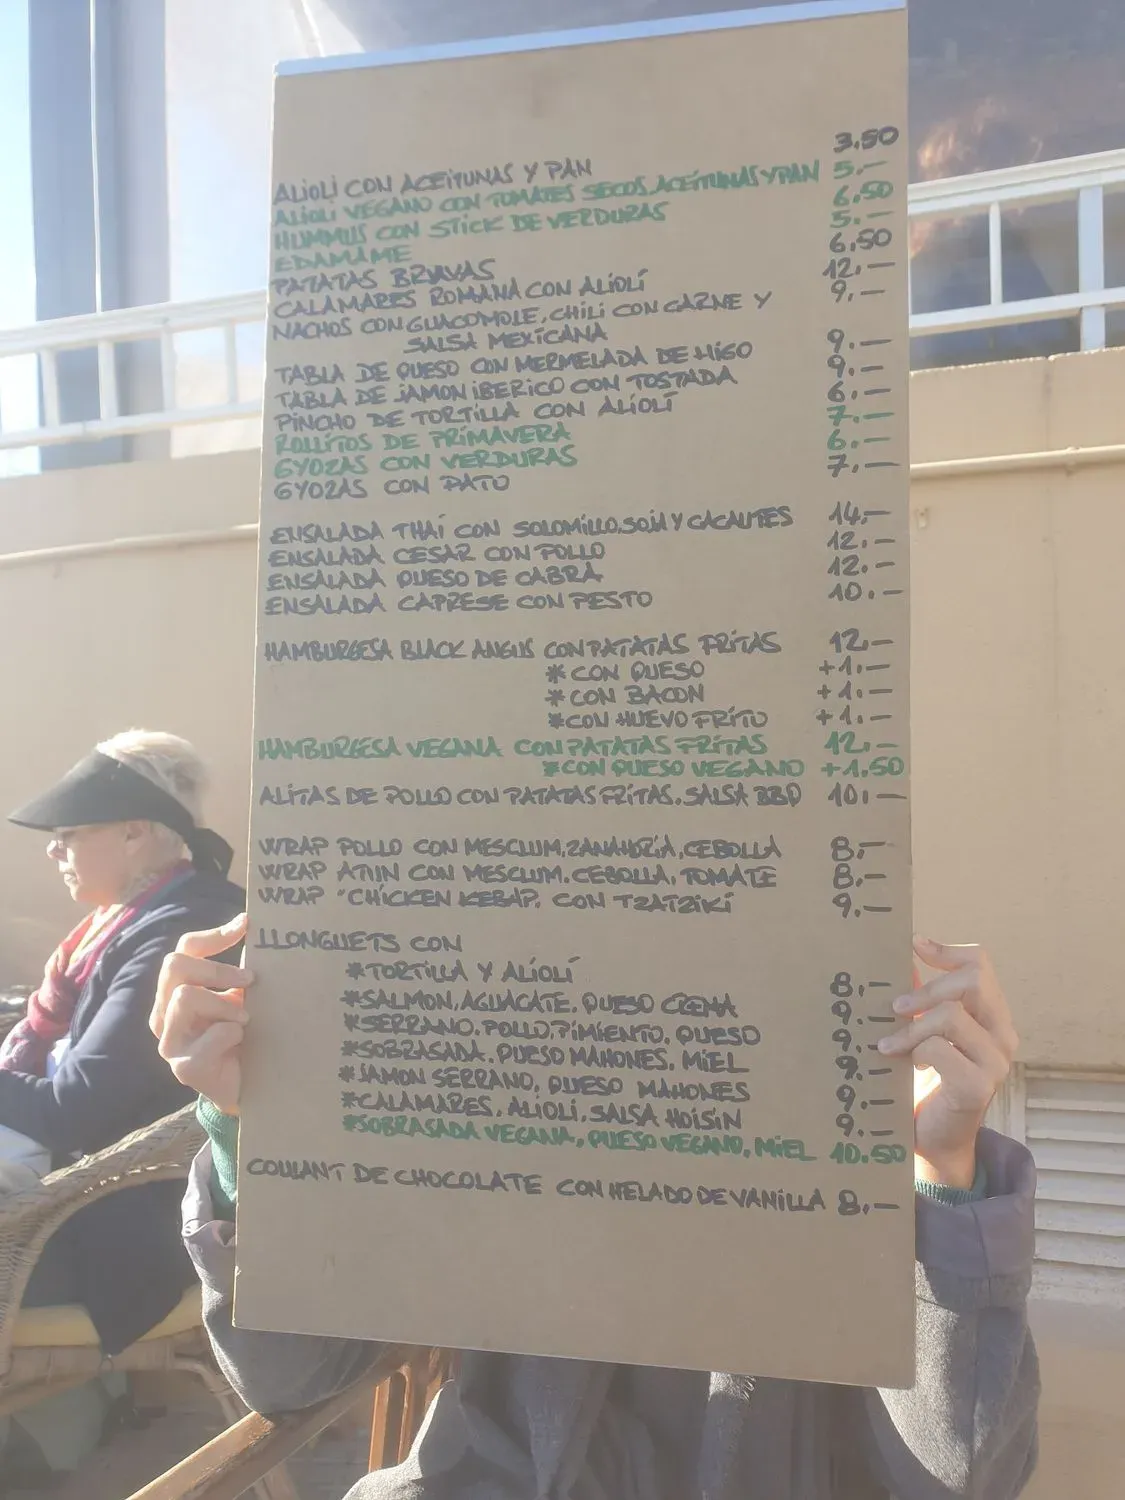 ALIOLI CON ACEITUNAS Y PAN 3.50
ALIOLI VEGANO CON TOMATES SECOS, ACEITUNAS Y PAN 5.—
HUMMUS CON STICK DE VERDURAS 6.50
EDAMAME 5.—
PATATAS BRAVAS 6,50
CALAMARES ROMANA CON ALIOLÍ 12,—
NACHOS CON GUACOMOLE, CHILI CON CARNE Y 9,—
SALSA MEXICANA
TABLA DE QUESO CON MERMELADA DE HIGO 9.—
TABLA DE JAMON IBERICO CON TOSTADA 9.—
PINCHO DE TORTILLA CON ALIOLÍ 6.—
ROLLITOS DE PRIMAVERA 7.—
GYOZAS CON VERDURAS 6.—
GYOZAS CON PATO 7.—
ENSALADA THAÍ CON SOLOMILLO, SOJA Y CACAUTES 14,—
ENSALADA CESAR CON POLLO 12.—
ENSALADA QUESO DE CABRA 12.—
ENSALADA CAPRESE CON PESTO 10.—
HAMBURGESA BLACK ANGUS CON PATATAS FRITAS 12,—
*CON QUESO +1.—
*CON BACON +1.—
*CON HUEVO FRITO +1.—
HAMBURGESA VEGANA CON PATATAS FRITAS 12.—
*CON QUESO VEGANO +1.50
ALITAS DE POLLO CON PATATAS FRITAS, SALSA BBQ 10.—
WRAP POLLO CON MESCLUM, ZANAHORIA, CEBOLLA 8.—
WRAP ATUN CON MESCLUM, CEBOLLA, TOMATE 8.—
WRAP "CHICKEN KEBAP" CON TZATZIKI 9.—
LLONGUETS CON
*TORTILLA Y ALIOLÍ 8.—
*SALMON, AGUACATE, QUESO CREMA 9.—
*SERRANO, POLLO, PIMIENTO, QUESO 9.—
*SOBRASADA, QUESO MAHONES, MIEL 9.—
*JAMON SERRANO, QUESO MAHONES 9.—
*CALAMARES, ALIOLI, SALSA HOISIN 9.—
*SOBRASADA VEGANA, QUESO VEGANO, MIEL 10.50
COULANT DE CHOCOLATE CON HELADO DE VANILLA 8.—